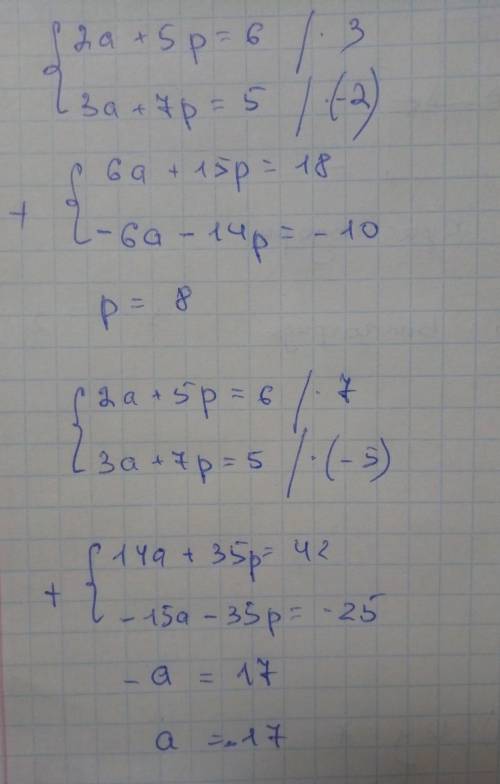 2a + 5p = 6 / · 3
3a + 7p = 5 / · (-2)
6a + 15p = 18
+
-6a - 14p = -10
p = 8
2a + 5p = 6 / · 7
3a + 7p = 5 / · (-5)
14a + 35p = 42
+
-15a - 35p = -25
-a = 17
a = -17